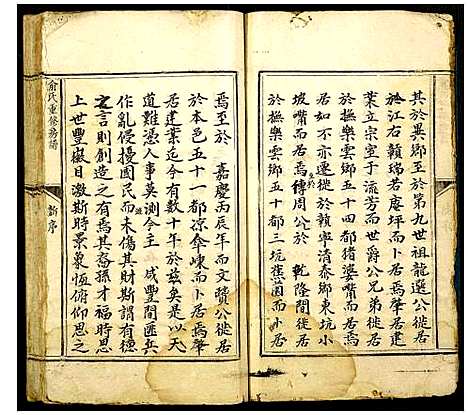 其於異鄉至於第九世祖龍選公徙居
於江右贛瑞若庵坪而卜居焉肇居建
業立宗室于流芳而世爵公兄弟徙居
居如不亦遷從於贛寧清泰鄉東坑小
於撫樂雲鄉五十四都猪婆嘴而居焉
坡嘴而居焉傳周公於 乾隆間徙居
於撫樂雲鄉五十都三坑崔茵而卜居
焉至於 嘉慶丙辰年而文贊公徙居
於本邑五十一都凉傘崠而卜居焉肇
居建業迄今有數十年於兹矣是以天
道難憑人事莫測今主 咸豐間匪兵
作亂侵擾國民而未傷其財斯謂有德
之言則創造之有焉其裔孫才福時思
上世豐嶽日激斯時景象恆俯仰思之
俞氏重修務譜
新序